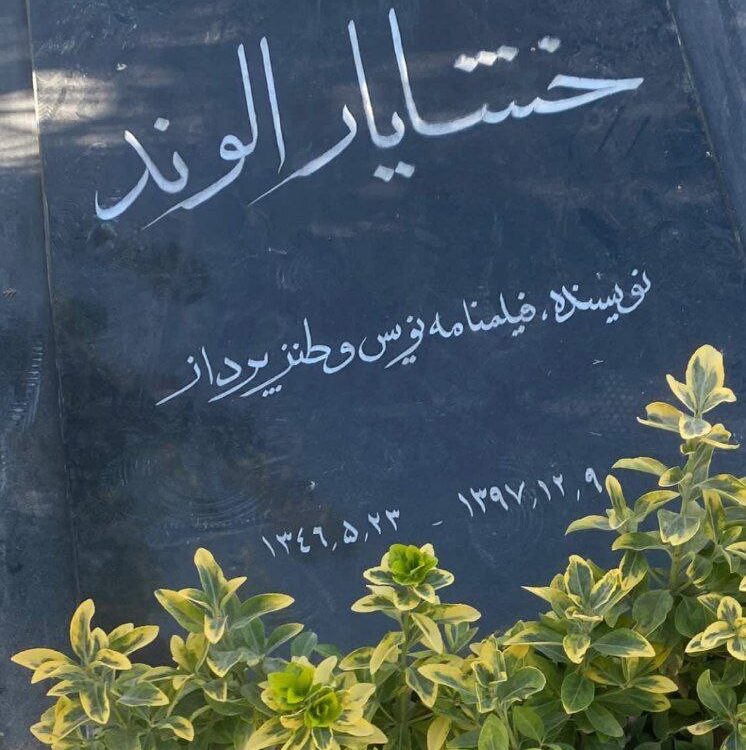 خشایار الوند
نویسنده، فیلمنامه نویس و طنز پرداز
۱۳۴۶٫۵٫۲۳ - ۱۳۹۷٫۱۲٫۹